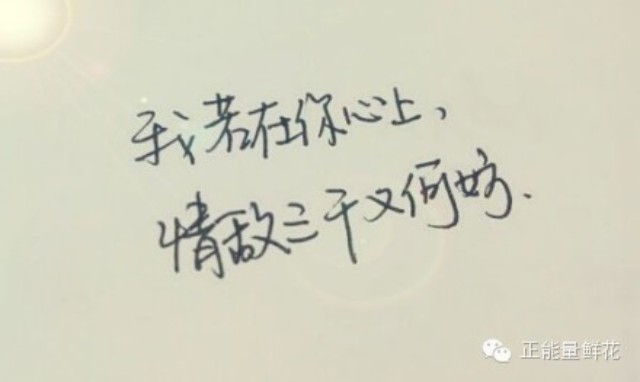 我若在你心上，
情敌三千又何妨.
正能量鲜花